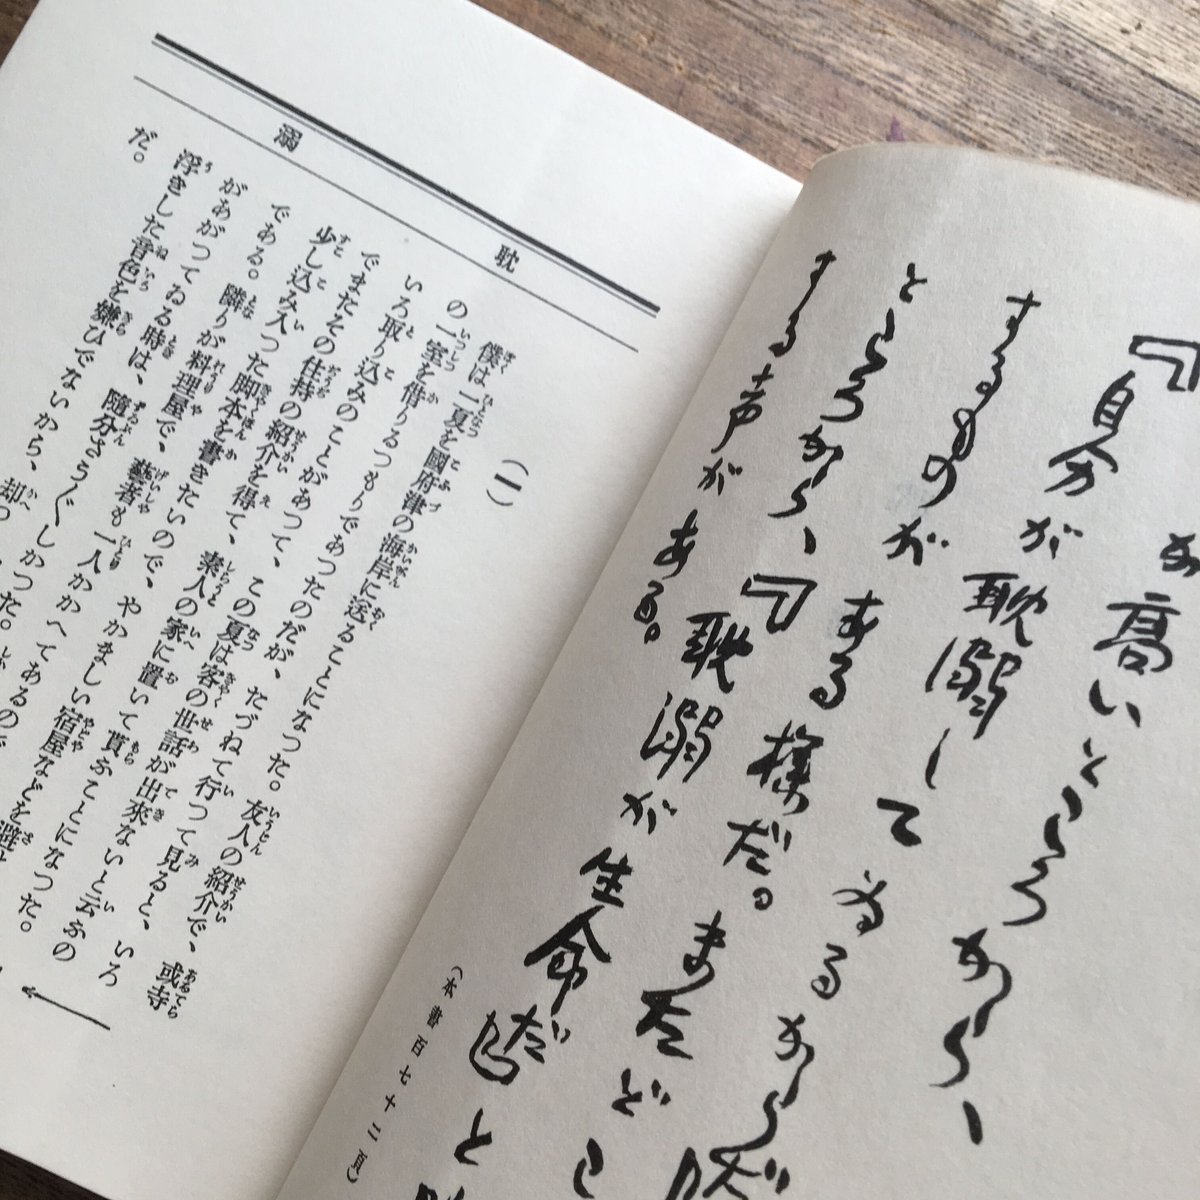 高いところから、
『自分が耽溺してゐるからだ
するものがある様だ。またど
ところから、『耽溺が生命だ』と
する声がある。
（本書百七十二頁）
耽溺
（一）
僕は一夏を國府津の海岸に送ることになつた。友人の紹介で、或寺
の一室を借りるつもりであつたのだが、たづねて行つて見ると、いろ
いろ取り込みのことがあつて、この夏は客の世話が出來ないと云ふの
でまたその住持の紹介を得て、素人の家に置いて貰ふことになつた。
少し込み入つた脚本を書きたいので、やかましい宿屋などを避け
である。隣りが料理屋で、藝者も一人かかへてあるので
があがつてゐる時は、隨分さう〴〵しかつた。しか
浮きした音色を嫌ひでないから、却つ
だ。